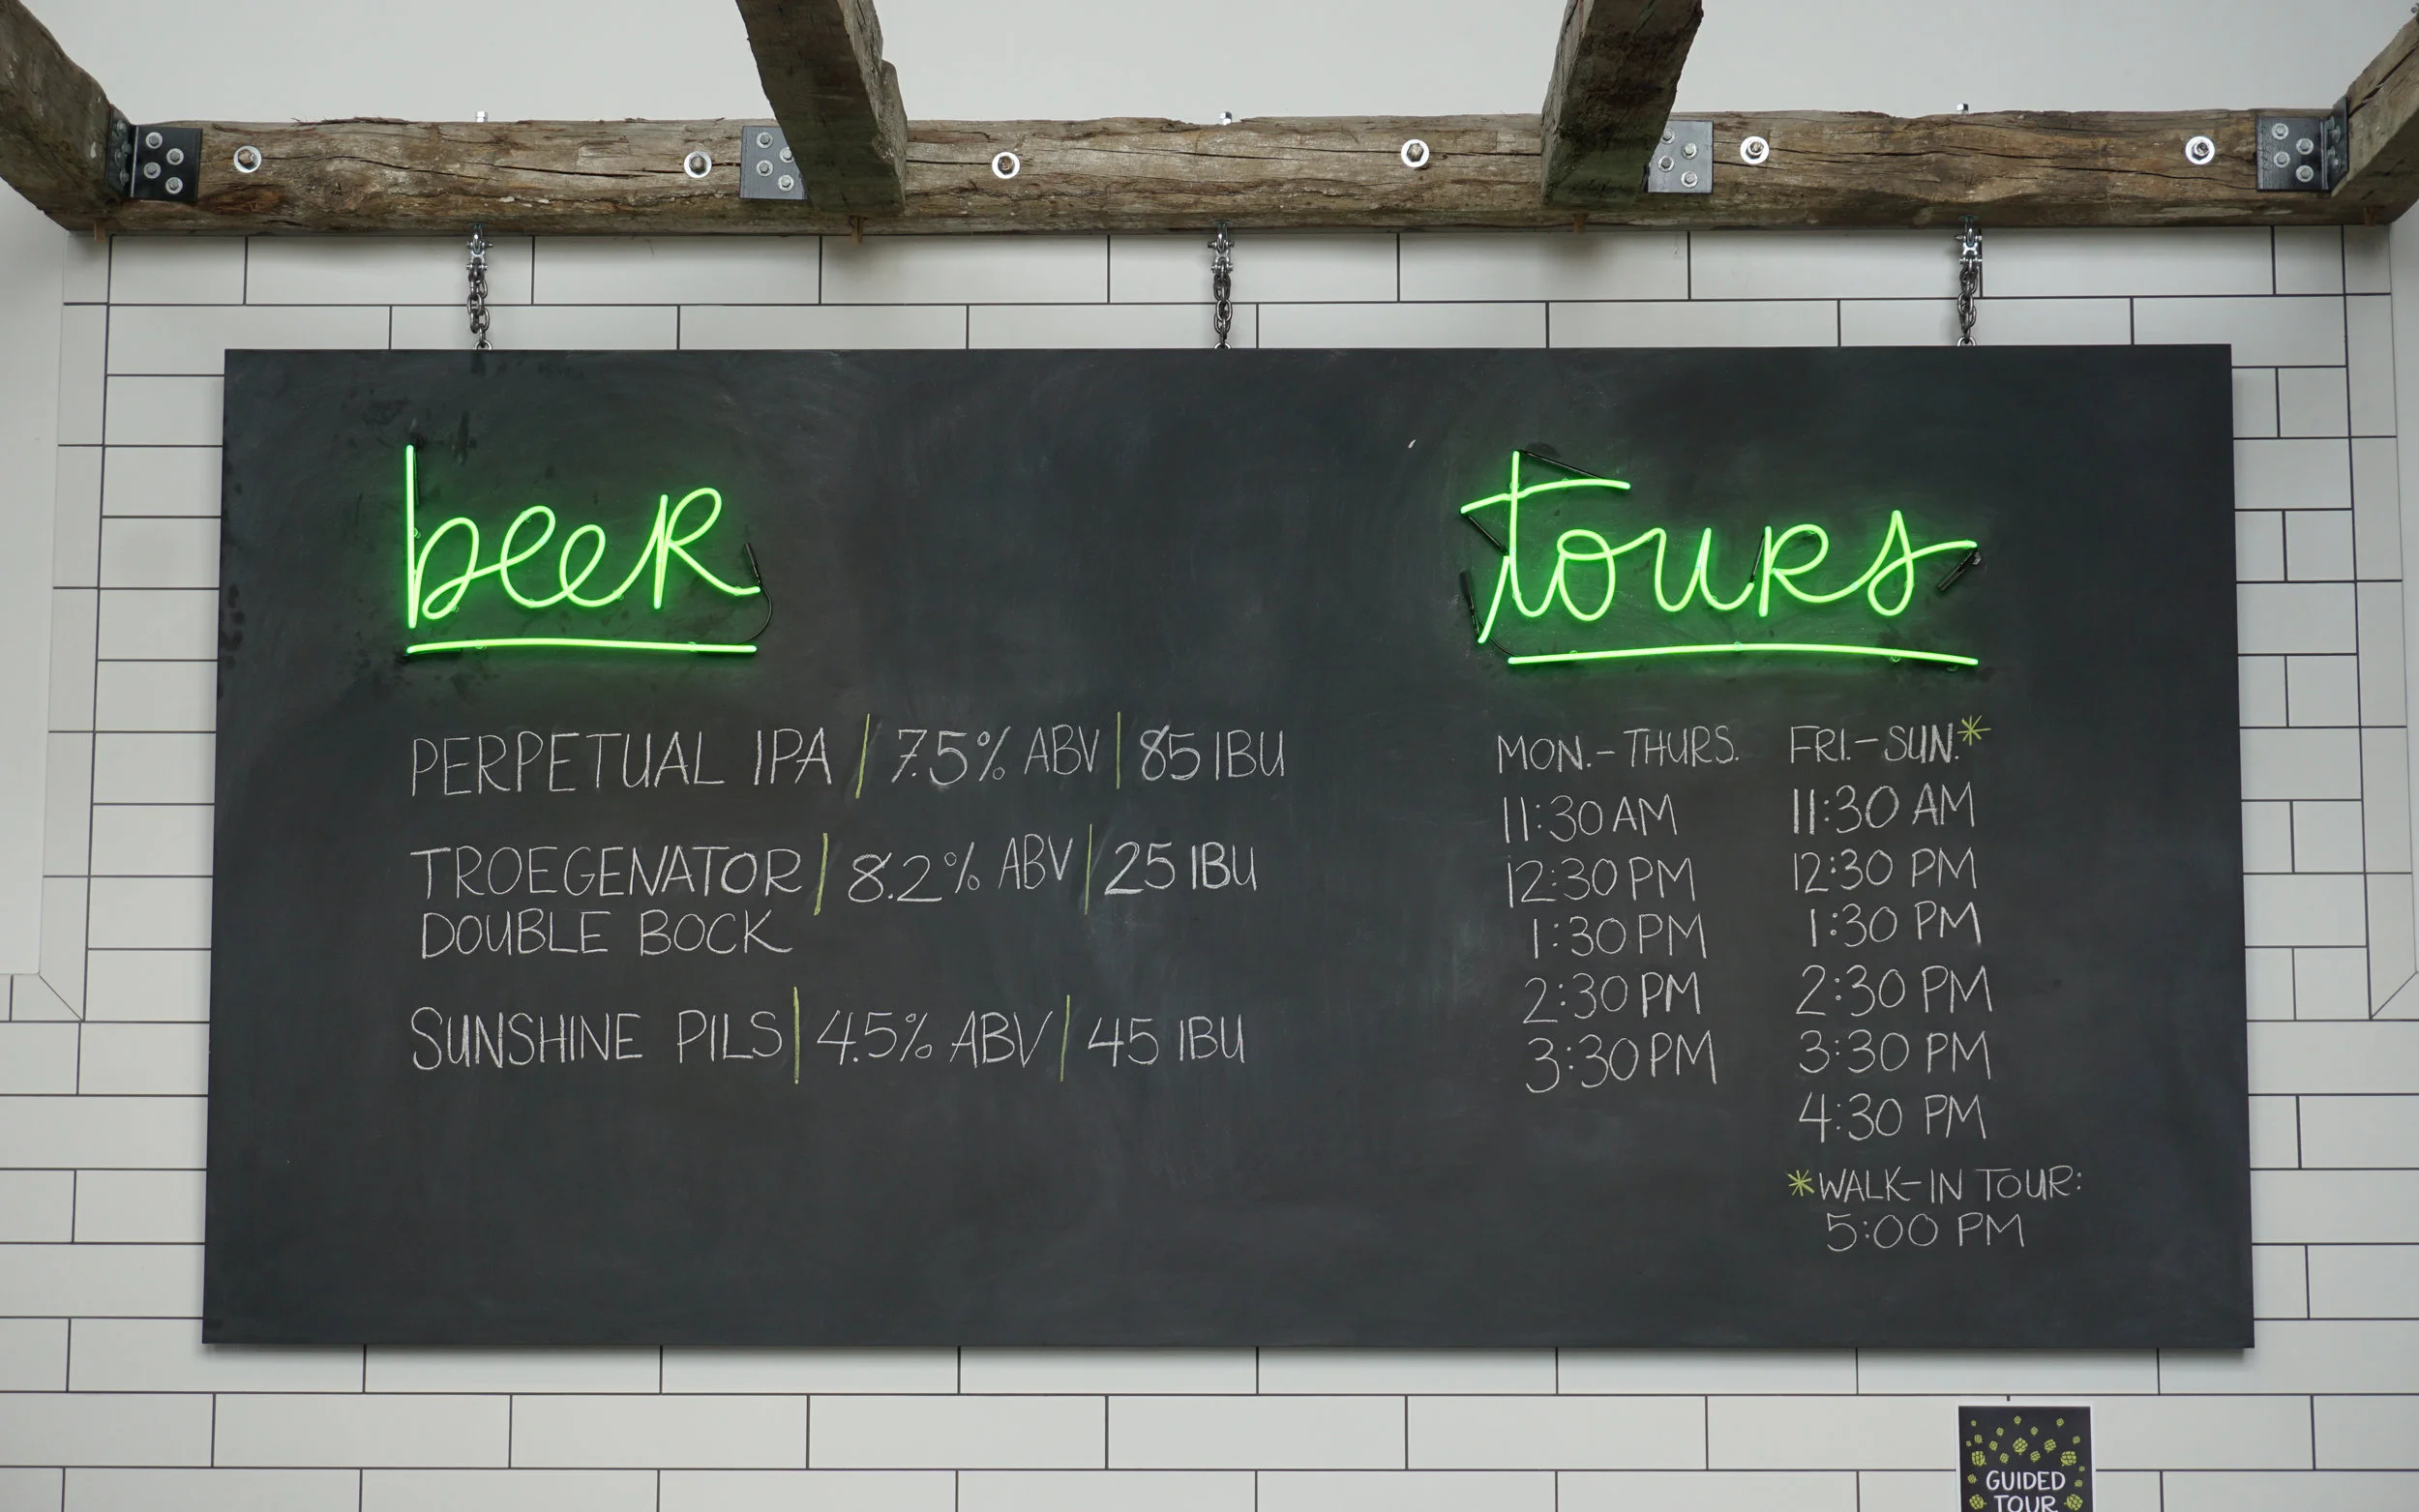 beer
PERPETUAL IPA | 7.5% ABV | 85 IBU
TROEGENATOR | 8.2% ABV | 25 IBU
DOUBLE BOCK
SUNSHINE PILS | 4.5% ABV | 45 IBU
tours
MON.-THURS.
11:30 AM
12:30 PM
1:30 PM
2:30 PM
3:30 PM
FRI.-SUN.*
11:30 AM
12:30 PM
1:30 PM
2:30 PM
3:30 PM
4:30 PM
*WALK-IN TOUR:
5:00 PM
GUIDED
TOUR